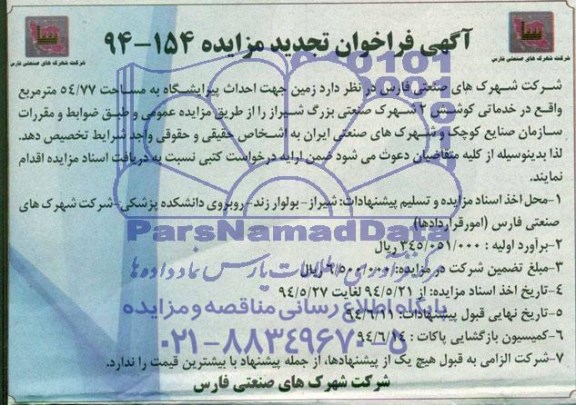 آگهی فراخوان تجدید مزایده ۱۵۴-۹۴
شرکت شهرک های صنعتی فارس
شرکت شهرک های صنعتی فارس
شرکت شهرک های صنعتی فارس در نظر دارد زمین جهت احداث پیرایشگاه به مساحت ۵۴/۷۷ مترمربع
واقع در خدماتی کوشش ۲ شهرک صنعتی بزرگ شیراز را از طریق مزایده عمومی و طبق ضوابط و مقررات
سازمان صنایع کوچک و شهرک های صنعتی ایران به اشخاص حقیقی و حقوقی واجد شرایط تخصیص دهد.
لذا بدینوسیله از کلیه متقاضیان دعوت می شود ضمن ارایه درخواست کتبی نسبت به دریافت اسناد مزایده اقدام
نمایند.
۱-محل اخذ اسناد مزایده و تسلیم پیشنهادات: شیراز-بولوار زند-روبروی دانشکده پزشکی-شرکت شهرک های
صنعتی فارس (امور قراردادها)
ParsNamadData
۲-برآورد اولیه : ۳۴۵/۰۵۱/۰۰۰ ریال
۳-مبلغ تضمین شرکت در مزایده: ریال
۴-تاریخ اخذ اسناد مزایده: از ۹۴/۵/۲۱ لغایت ۹۴/۵/۲۷
پایگاه اطلاع رسانی مناقصه و مزایده
۵-تاریخ نهایی قبول پیشنهادات: ۹۴/۶/۱۱
۶-کمیسیون بازگشایی پاکات : ۹۴/۶/۱۴
۰۲۱-۸۸۳۴۹۶۷۰-۵
۷-شرکت الزامی به قبول هیچ یک از پیشنهادها، از جمله پیشنهاد با بیشترین قیمت را ندارد.
شرکت شهرک های صنعتی فارس